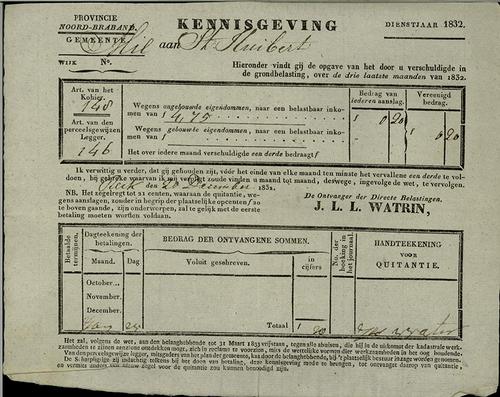 PROVINCIE
NOORD-BRABAND.
GEMEENTE
WIJK N°.
KENNISGEVING
aan St. Huibert
DIENSTJAAR 1832.
Hieronder vindt gij de opgave van het door u verschuldigde in
de grondbelasting, over de drie laatste maanden van 1832.
Art. van het
Kohier.
148
Art. van den
perceelsgewijzen
Legger.
146
Wegens ongebouwde eigendommen, naar een belastbaar inko-
men van f 4,75
Wegens gebouwde eigendommen, naar een belastbaar inko-
men van f
Het over iedere maand verschuldigde een derde bedraagt f
Bedrag van
iederen aanslag.
0 20
Vereenigd
bedrag.
0 20
Ik verwittig u verder, dat gij gehouden zijt, vóór het einde van elke maand ten minste het vervallene een derde te vol-
doen, bij gebreke waarvan ik mij verpligt zoude vinden u maand tot maand, deswege, ingevolge de wet, te vervolgen.
den 20 December 1832.
NB. Het zegelregt van 21 centen, waaraan de quitantie, we-
gens aanslagen, zonder in begrip der plaatselijke opcenten f 20
te boven gaande, zijn onderworpen, zal te gelijk met de eerste
betaling moeten worden voldaan.
De Ontvanger der Directe Belastingen.
J. L. L. WATRIN,
Betaalde
termijnen.
Dagteekening der
betalingen.
Maand. Dag
BEDRAG DER ONTVANGENE SOMMEN.
Voluit geschreven.
in
cijfers
No. der
boeking in
het journaal.
HANDTEEKENING
VOOR
QUITANTIE.
October...
November.
December.
Totaal
Het zal, volgens de wet, aan den belanghebbende tot 31 Maart 1833 vrijstaan, tegen alle abuisen, die hij in de uitkomst der kadastrale werk-
zaamheden te zijnen aanzien ontdekken mogt, zich in reclame te voorzien, mits de wettelijke vormen dier werkzaamheden in het oog houdende.
Van den perceelsgewijzen legger, mitsgaders van het plan der gemeente, kan door de belanghebbenden, bij 't plaatselijk bestuur inzage worden genomen.